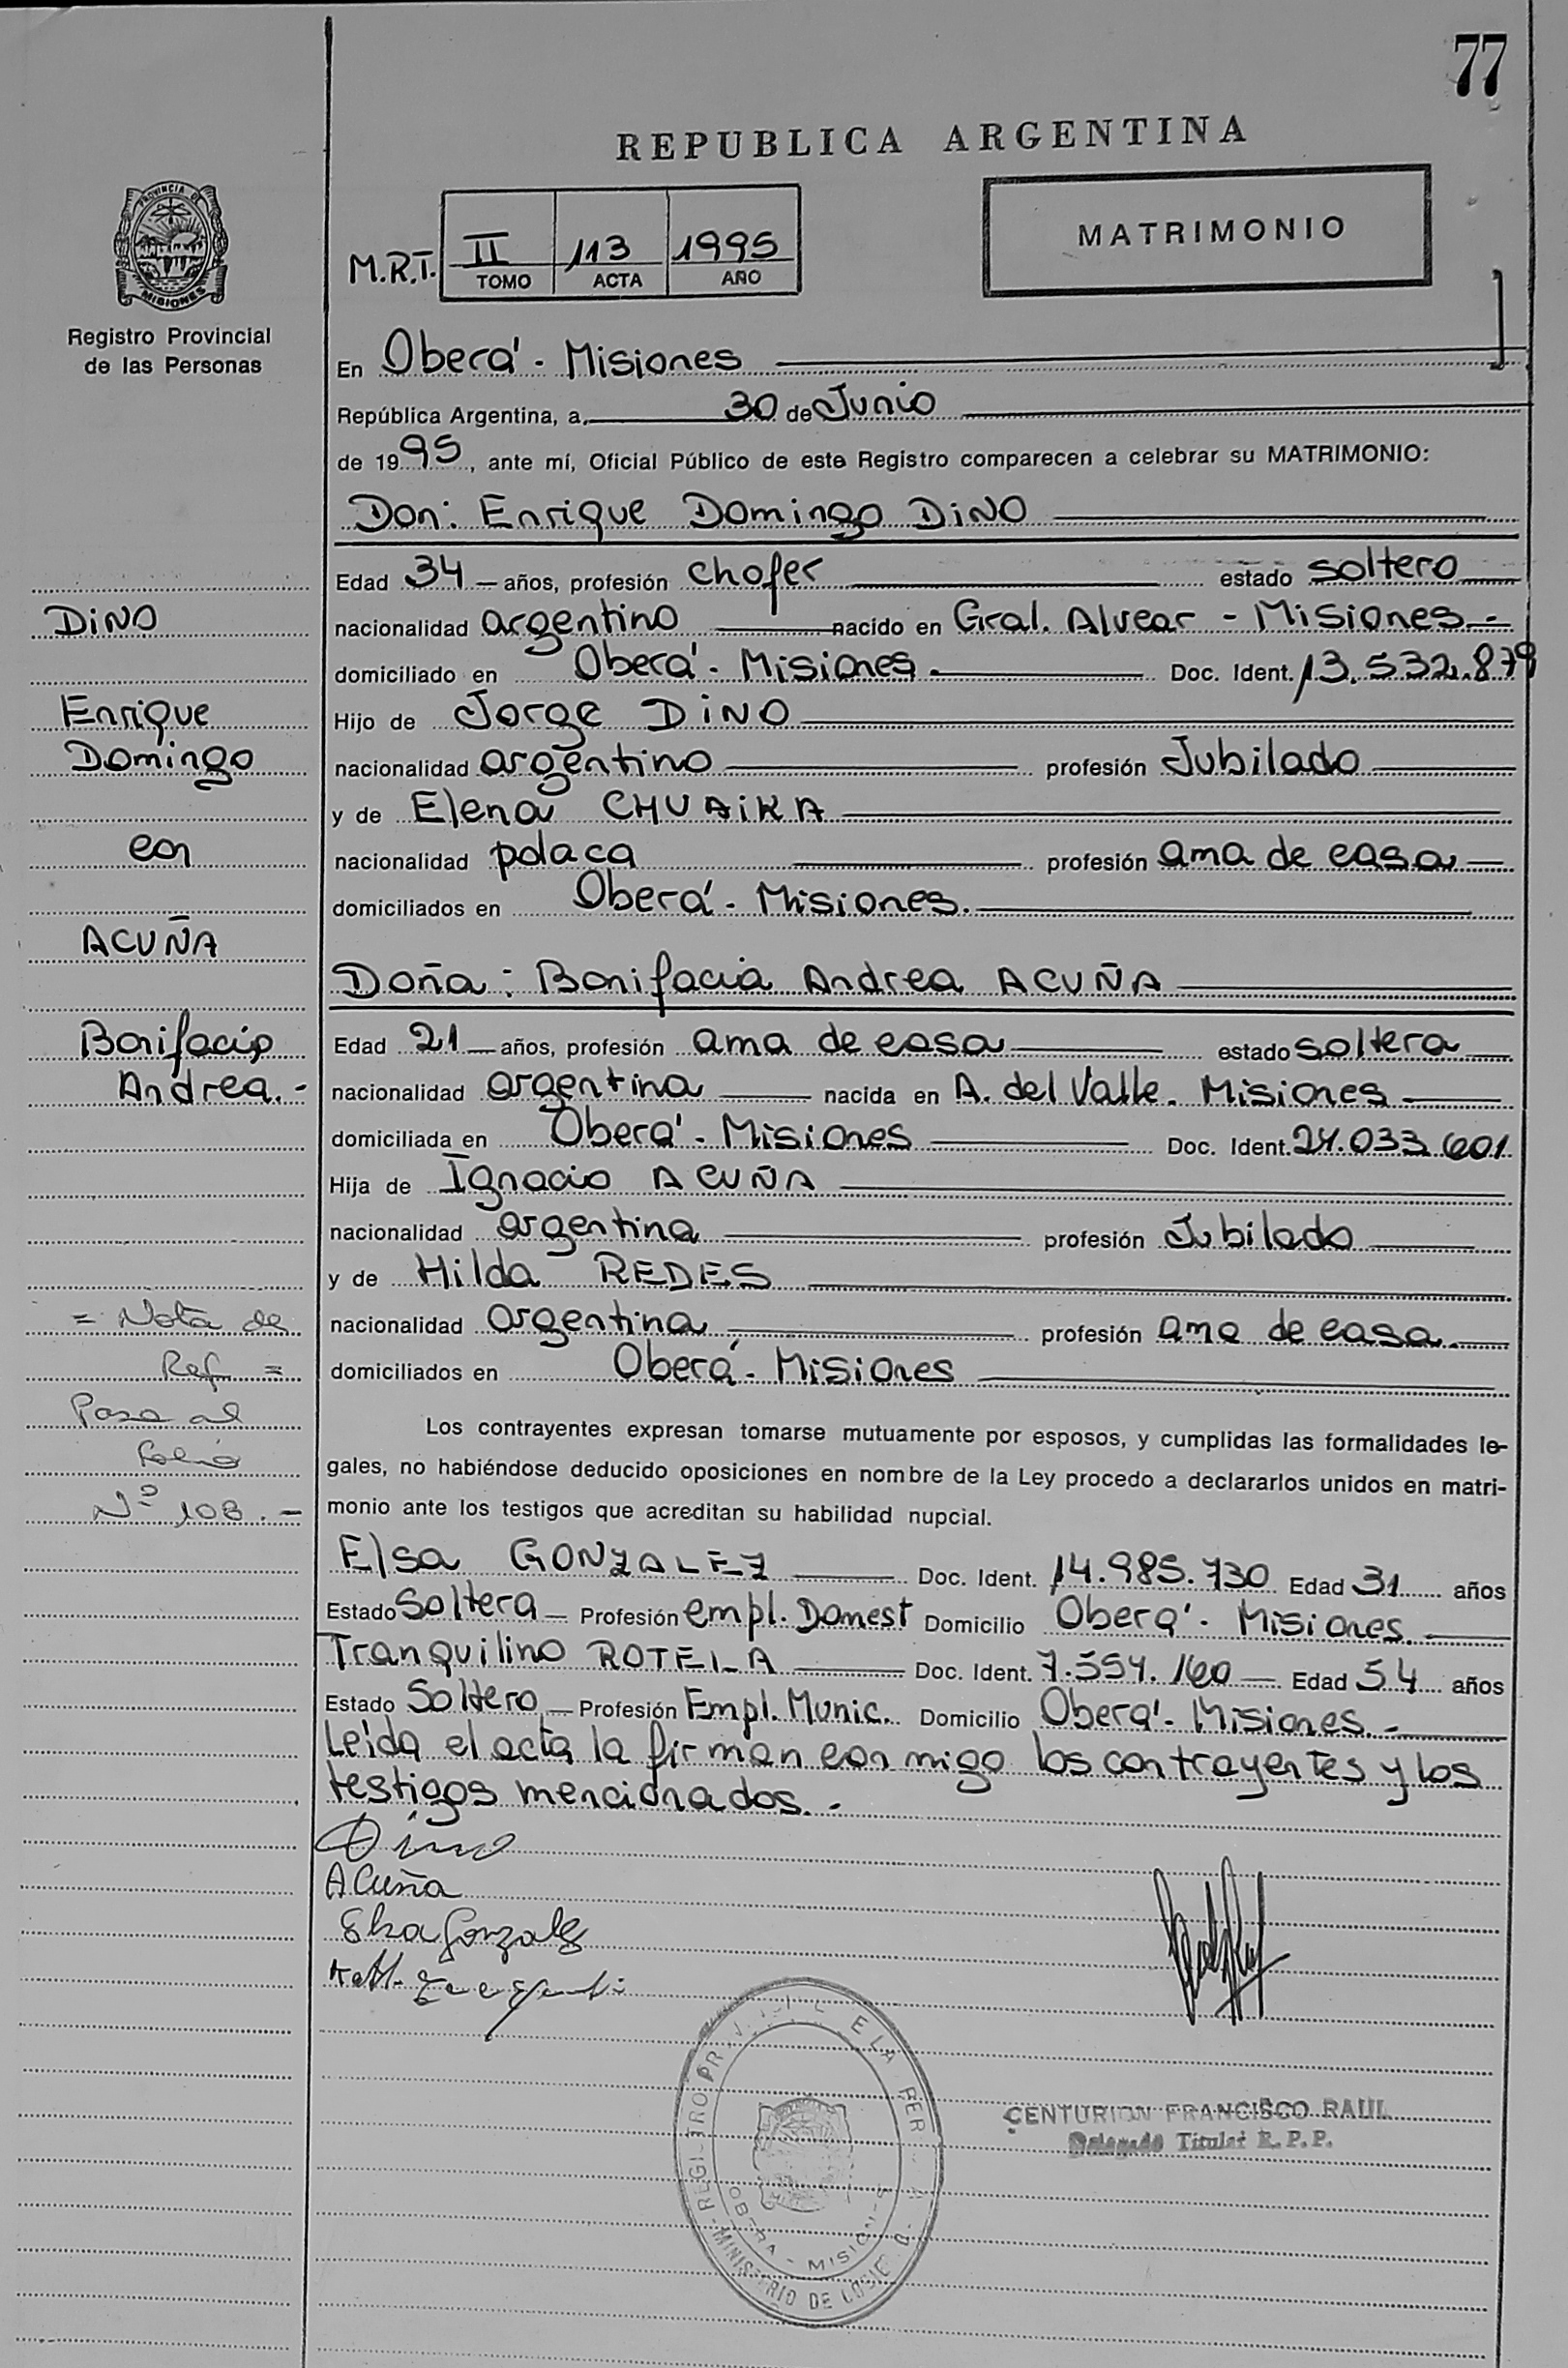 77
REPUBLICA ARGENTINA
PROVINCIA DE
MISIONES
Registro Provincial
de las Personas
M.R.T. II 113 1995
TOMO ACTA AÑO
MATRIMONIO
En Oberá - Misiones
República Argentina, a 30 de Junio
de 1995, ante mí, Oficial Público de este Registro comparecen a celebrar su MATRIMONIO:
Don: Enrique Domingo DiNO
Edad 34 años, profesión chofer estado soltero
nacionalidad argentino nacido en Gral. Alvear - Misiones.-
domiciliado en Oberá - Misiones. Doc. Ident. 13.532.879
Hijo de Jorge DiNO
nacionalidad argentino profesión Jubilado
y de Elena CHUAiKA
nacionalidad polaca profesión ama de casa
domiciliados en Oberá - Misiones.
Doña: Bonifacia Andrea ACUÑA
Edad 21 años, profesión ama de casa estado soltera
nacionalidad argentina nacida en A. del Valle. Misiones
domiciliada en Oberá - Misiones Doc. Ident. 24.033.601
Hija de Ignacio ACUÑA
nacionalidad argentina profesión Jubilado
y de Hilda REDES
nacionalidad argentina profesión ama de casa.
domiciliados en Oberá - Misiones
DiNO
Enrique
Domingo
con
ACUÑA
Bonifacia
Andrea.-
= Nota de
Ref =
Pasa al
folio
Nº 108.-
Los contrayentes expresan tomarse mutuamente por esposos, y cumplidas las formalidades le-
gales, no habiéndose deducido oposiciones en nombre de la Ley procedo a declararlos unidos en matri-
monio ante los testigos que acreditan su habilidad nupcial.
Elsa GONZALEZ Doc. Ident. 14.985.730 Edad 31 años
Estado Soltera Profesión empl. Domest Domicilio Oberá - Misiones.
Tranquilino ROTELA Doc. Ident. 7.554.160 Edad 54 años
Estado Soltero Profesión Empl. Munic. Domicilio Oberá - Misiones.-
Leída el acta la firman con migo los contrayentes y los
testigos mencionados.-
Dino
Acuña
Elsa Gonzalez
CENTURION FRANCISCO RAUL
Delegado Titular R.P.P.
OBERA - MISIONES